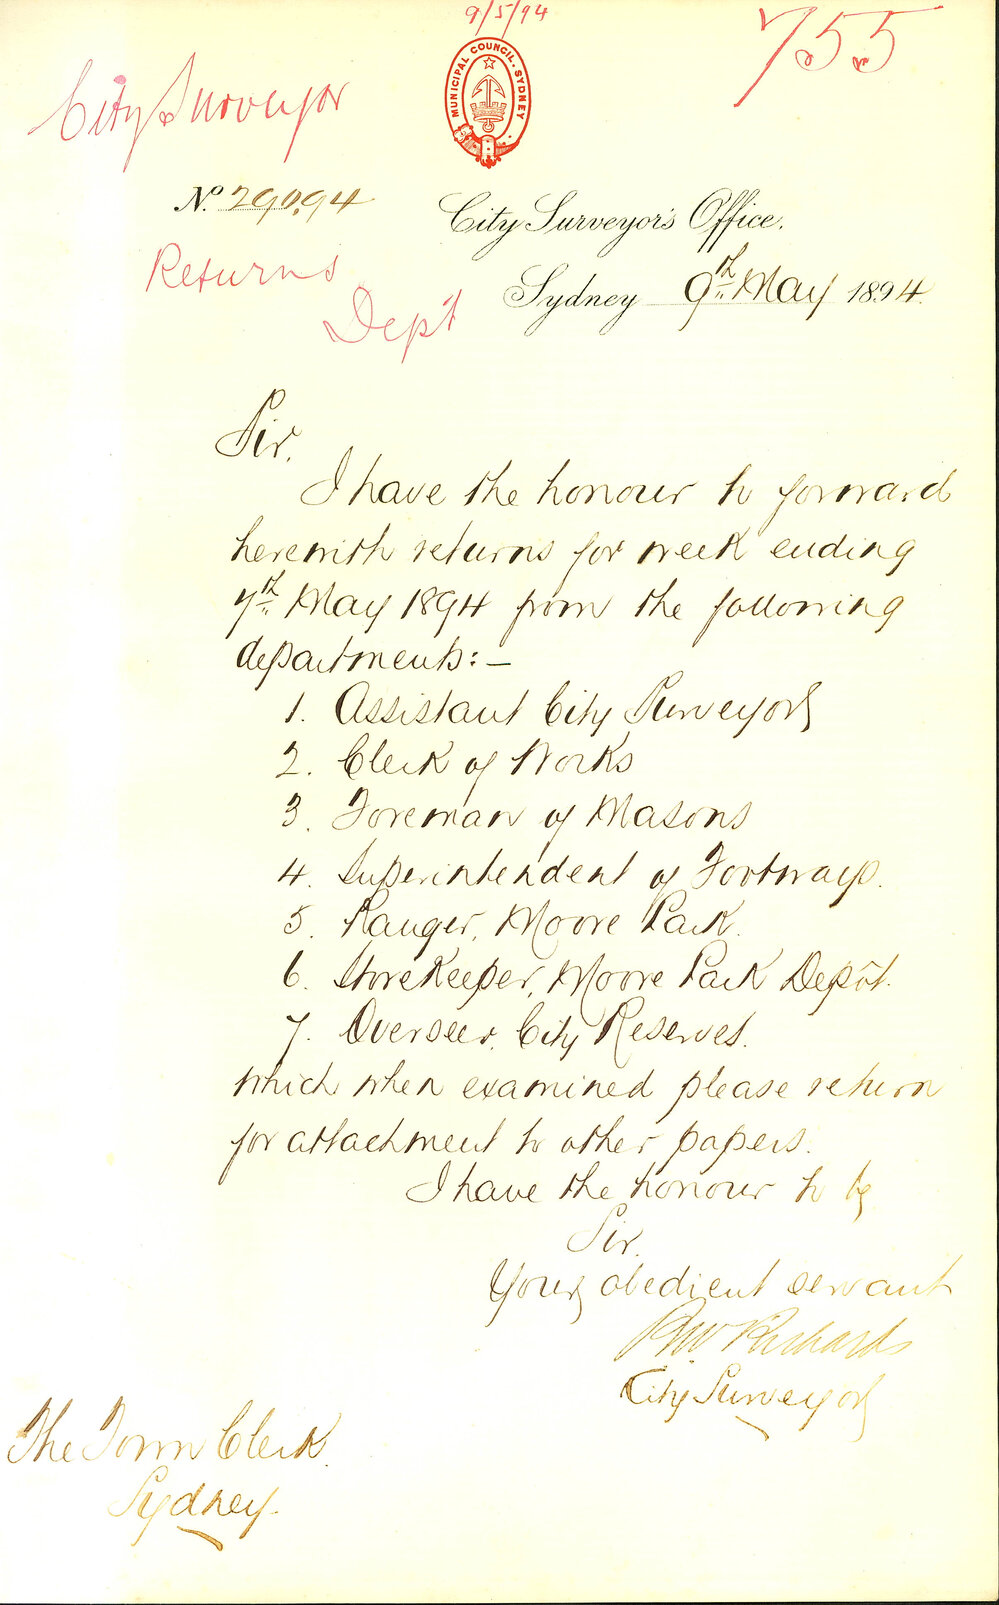 9/5/94
755
City Surveyor
MUNICIPAL COUNCIL. SYDNEY
No. 290.94
City Surveyor's Office.
Returns
Dept
Sydney 9th May 1894.
Sir,
I have the honour to forward
herewith returns for week ending
7th May 1894 from the following
departments:—
1. Assistant City Surveyor
2. Clerk of Works
3. Foreman of Masons
4. Superintendent of Footways.
5. Ranger, Moore Park.
6. Storekeeper, Moore Park Depôt.
7. Overseer, City Reserves.
which when examined please return
for attachment to other papers.
I have the honour to be
Sir,
Your obedient servant
RW Richards
City Surveyor
The Town Clerk.
Sydney.